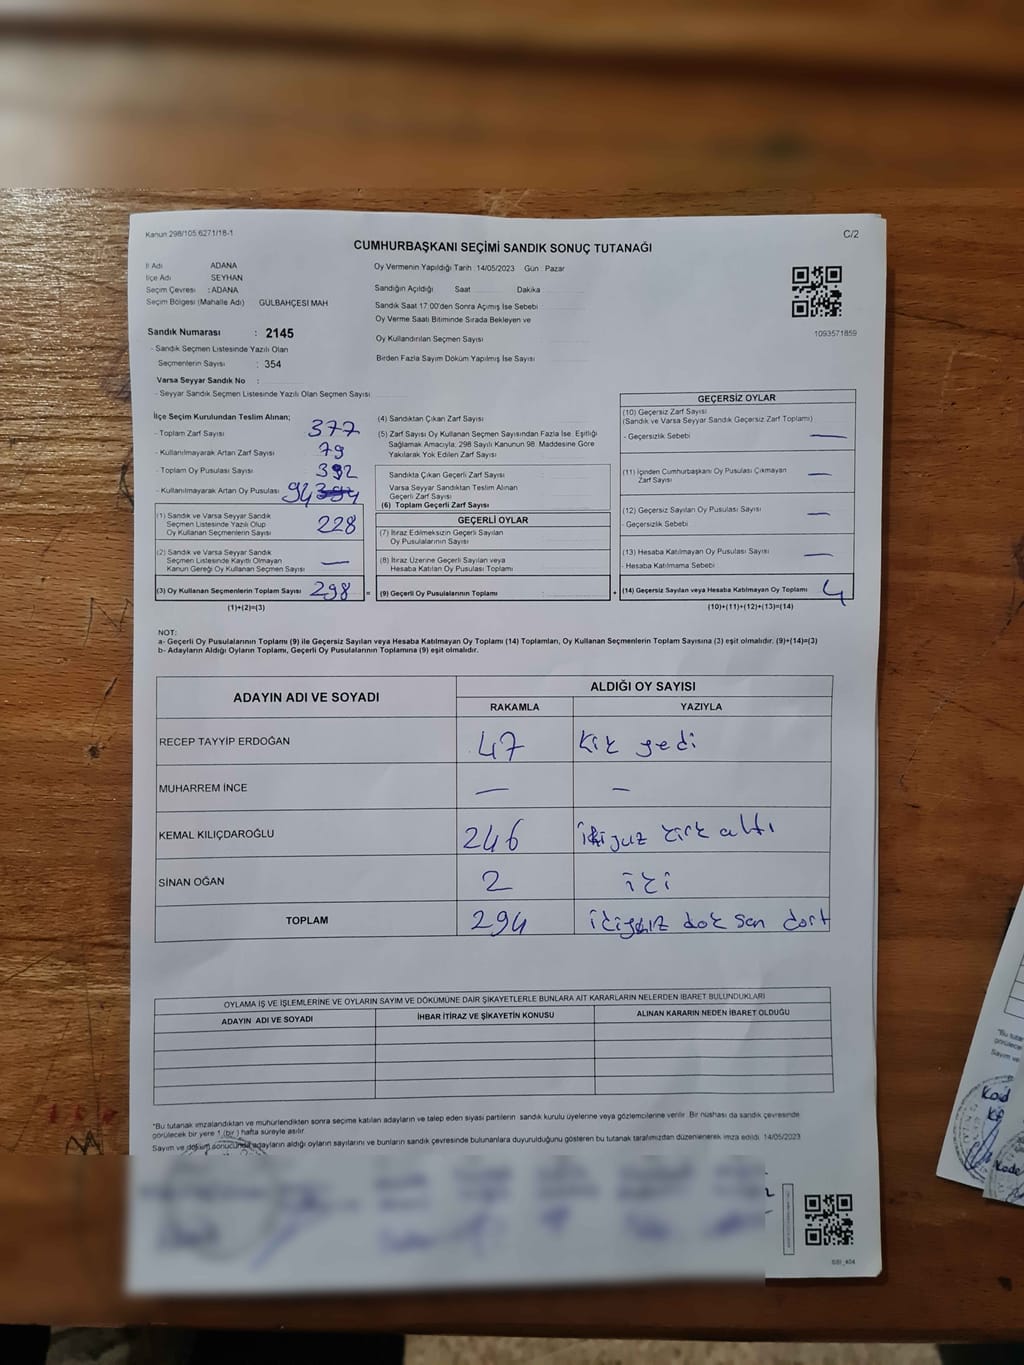 Kanun:298/105 6271/18-1
C/2
CUMHURBAŞKANI SEÇİMİ SANDIK SONUÇ TUTANAĞI
İl Adı ADANA
İlçe Adı SEYHAN
Seçim Çevresi : ADANA
Seçim Bölgesi (Mahalle Adı) GÜLBAHÇESİ MAH
Sandık Numarası : 2145
- Sandık Seçmen Listesinde Yazılı Olan
Seçmenlerin Sayısı : 354
Varsa Seyyar Sandık No :
- Seyyar Sandık Seçmen Listesinde Yazılı Olan Seçmen Sayısı
Oy Vermenin Yapıldığı Tarih :14/05/2023 Gün : Pazar
Sandığın Açıldığı Saat Dakika
Sandık Saat 17:00'den Sonra Açımış İse Sebebi
Oy Verme Saati Bitiminde Sırada Bekleyen ve
Oy Kullandırılan Seçmen Sayısı
Birden Fazla Sayım Döküm Yapılmış İse Sayısı
1093571859
İlçe Seçim Kurulundan Teslim Alınan;
- Toplam Zarf Sayısı 377
- Kullanılmayarak Artan Zarf Sayısı 79
- Toplam Oy Pusulası Sayısı 392
- Kullanılmayarak Artan Oy Pusulası 94
(1) Sandık ve Varsa Seyyar Sandık
Seçmen Listesinde Yazılı Olup
Oy Kullanan Seçmenlerin Sayısı 228
(2) Sandık ve Varsa Seyyar Sandık
Seçmen Listesinde Kayıtlı Olmayan
Kanun Gereği Oy Kullanan Seçmen Sayısı —
(3) Oy Kullanan Seçmenlerin Toplam Sayısı 298 =
(1)+(2)=(3)
(4) Sandıktan Çıkan Zarf Sayısı
(5) Zarf Sayısı Oy Kullanan Seçmen Sayısından Fazla İse, Eşitliği
Sağlamak Amacıyla, 298 Sayılı Kanunun 98. Maddesine Göre
Yakılarak Yok Edilen Zarf Sayısı
Sandıkta Çıkan Geçerli Zarf Sayısı
Varsa Seyyar Sandıktan Teslim Alınan
Geçerli Zarf Sayısı
(6) Toplam Geçerli Zarf Sayısı
GEÇERLİ OYLAR
(7) İtiraz Edilmeksizin Geçerli Sayılan
Oy Pusulalarının Sayısı
(8) İtiraz Üzerine Geçerli Sayılan veya
Hesaba Katılan Oy Pusulası Toplamı
(9) Geçerli Oy Pusulalarının Toplamı : +
GEÇERSİZ OYLAR
(10) Geçersiz Zarf Sayısı
(Sandık ve Varsa Seyyar Sandık Geçersiz Zarf Toplamı)
- Geçersizlik Sebebi —
(11) İçinden Cumhurbaşkanı Oy Pusulası Çıkmayan
Zarf Sayısı —
(12) Geçersiz Sayılan Oy Pusulası Sayısı —
- Geçersizlik Sebebi
(13) Hesaba Katılmayan Oy Pusulası Sayısı —
- Hesaba Katılmama Sebebi
(14) Geçersiz Sayılan veya Hesaba Katılmayan Oy Toplamı 4
(10)+(11)+(12)+(13)=(14)
NOT:
a- Geçerli Oy Pusulalarının Toplamı (9) ile Geçersiz Sayılan veya Hesaba Katılmayan Oy Toplamı (14) Toplamları, Oy Kullanan Seçmenlerin Toplam Sayısına (3) eşit olmalıdır. (9)+(14)=(3)
b- Adayların Aldığı Oyların Toplamı, Geçerli Oy Pusulalarının Toplamına (9) eşit olmalıdır.
ADAYIN ADI VE SOYADI ALDIĞI OY SAYISI
RAKAMLA YAZIYLA
RECEP TAYYİP ERDOĞAN 47 kırk yedi
MUHARREM İNCE — —
KEMAL KILIÇDAROĞLU 246 ikiyuz kırk altı
SİNAN OĞAN 2 iki
TOPLAM 294 ikiyüz dok san dört
OYLAMA İŞ VE İŞLEMLERİNE VE OYLARIN SAYIM VE DÖKÜMÜNE DAİR ŞİKAYETLERLE BUNLARA AİT KARARLARIN NELERDEN İBARET BULUNDUKLARI
ADAYIN ADI VE SOYADI İHBAR İTİRAZ VE ŞİKAYETİN KONUSU ALINAN KARARIN NEDEN İBARET OLDUĞU
"Bu tutanak imzalandıktan ve mühürlendikten sonra seçime katılan adayların ve talep eden siyasi partilerin sandık kurulu üyelerine veya gözlemcilerine verilir. Bir nüshası da sandık çevresinde
görülecek bir yere 1 (bir) hafta süreyle asılır.
Sayım ve döküm sonucunda adayların aldığı oyların sayılarını ve bunların sandık çevresinde bulunanlara duyurulduğunu gösteren bu tutanak tarafımızdan düzenlenerek imza edildi. 14/05/2023